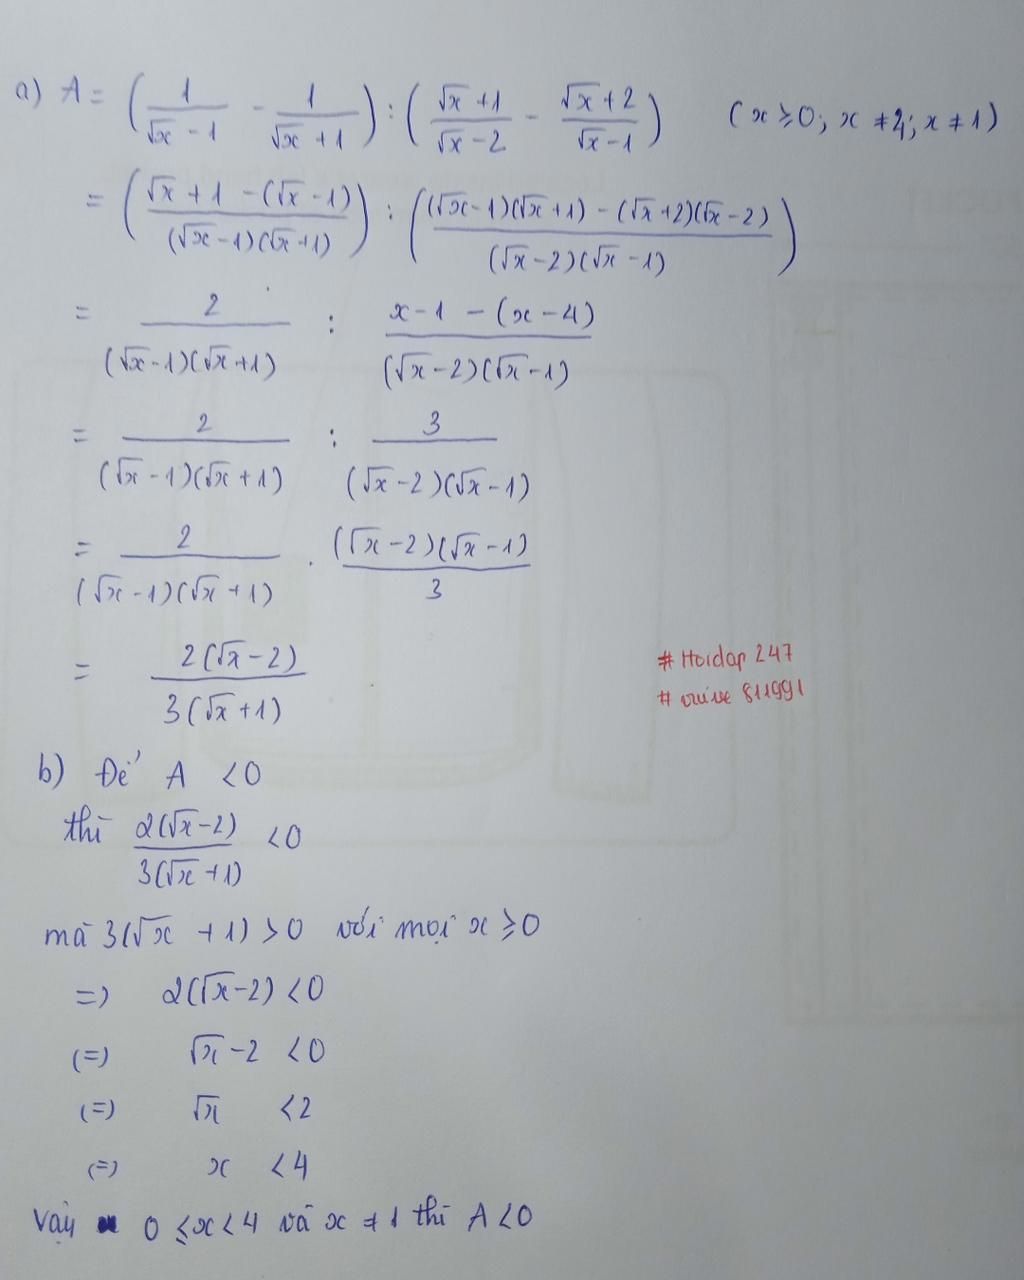 a) A = (1/(√x - 1) - 1/(√x + 1)) : ((√x + 1)/(√x - 2) - (√x + 2)/(√x - 1)) (x ≥ 0; x ≠ 4; x ≠ 1)
= ((√x + 1 - (√x - 1))/((√x - 1)(√x + 1))) : (((√x - 1)(√x + 1) - (√x + 2)(√x - 2))/((√x - 2)(√x - 1)))
= 2/((√x - 1)(√x + 1)) : (x - 1 - (x - 4))/((√x - 2)(√x - 1))
= 2/((√x - 1)(√x + 1)) : 3/((√x - 2)(√x - 1))
= 2/((√x - 1)(√x + 1)) . ((√x - 2)(√x - 1))/3
= 2(√x - 2)/3(√x + 1)
# Hoidap 247
# 811991
b) Để A < 0
thì 2(√x - 2)/3(√x + 1) < 0
mà 3(√x + 1) > 0 với mọi x ≥ 0
=> 2(√x - 2) < 0
(=) √x - 2 < 0
(=) √x < 2
(=) x < 4
Vậy 0 ≤ x < 4 và x ≠ 1 thì A < 0